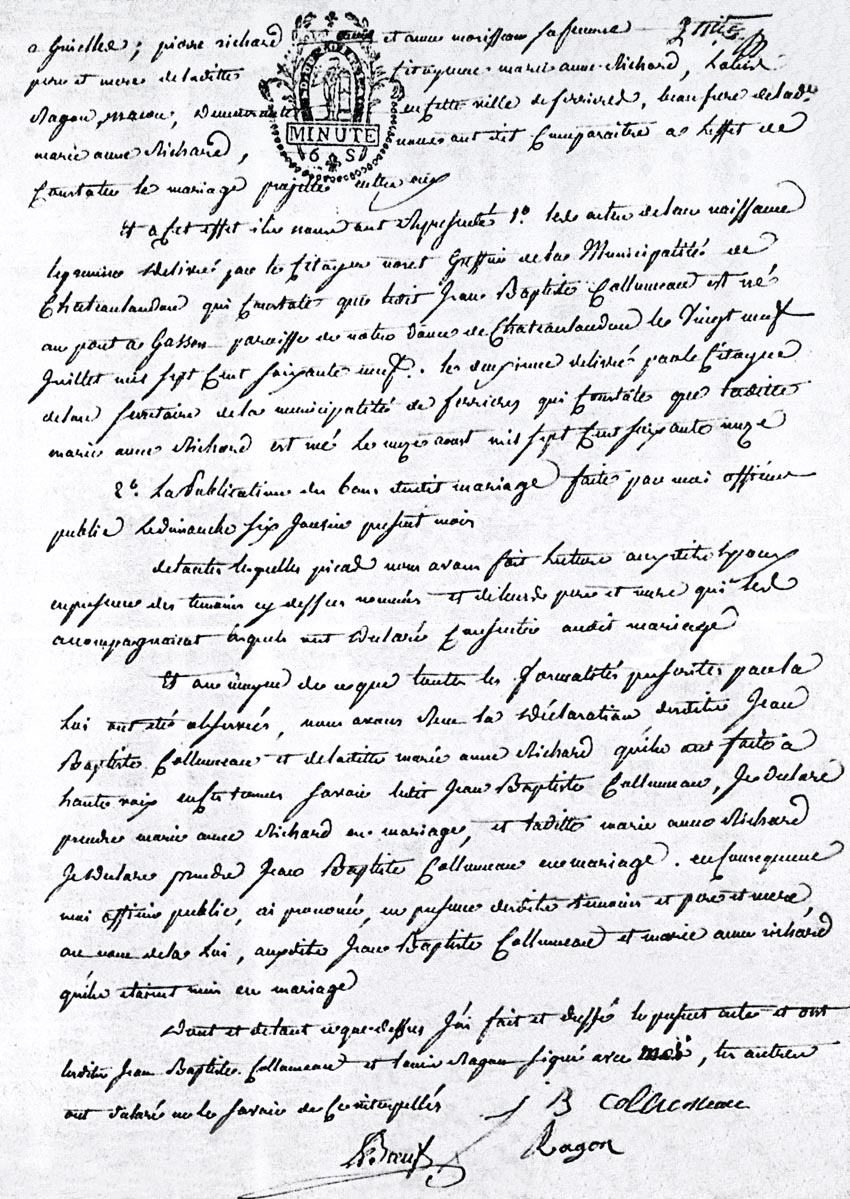 a Griselles; pierre richard et anne morisseau sa femme
pere et mere de laditte Citoyenne marie anne Richard, Louis
Ragon, macon, demeurante en cette ville de ferrieres, beau frere de lad.
MINUTE
6 S
marie anne Richard, nous ont dit Comparaitre a L'effet de
Constater le mariage projetté entre eux
Et a Cet effet ils nous ont Representé 1º les actes de leur naissance
le premier delivré par le Citoyen noret Greffier de la Municipalité de
Chateaulandon qui Constate que ledit Jean Baptiste Collumeau est né
au pont a Gasson paroisse de notre dame de Chateaulandon le Vingt neuf
Juillet mil sept Cent soixante neuf. les deuxieme delivré par le Citoyen
secretaire de la municipalité de ferrieres qui Constate que laditte
marie anne Richard est née le onze aoust mil sept Cent soixante onze
2º. La Publication des bans dudit mariage faite par moi officier
public Le dimanche six Janvier present mois
de toutes lesquelles pieces nous avons fait Lecture auxdits Epoux
en presence des temoins cy dessus nommés et de leurs pere et mere qui les
acompagnaient lesquels ont declaré Consentir audit mariage
Et au moyen de ce que toutes les formalités prescrites par la
Loi ont été observées, nous avons Recu la déclaration desdits Jean
Baptiste Collumeau et de laditte marie anne Richard qu'ils ont faite à
haute voix en ces termes savoir ledit Jean Baptiste Collumeau, Je declare
prendre marie anne Richard en mariage, et laditte marie anne Richard
Je declare prendre Jean Baptiste Collumeau en mariage. en Consequence
moi officier public, ai prononcé, en presence desdits temoins et pere et mere,
au nom de la Loi, auxdits Jean Baptiste Collumeau et marie anne richard
qu'ils etaient unis en mariage
Dont et de tout ce que dessus J'ai fait et dressé le present acte et ont
lesdits Jean Baptiste Collumeau et Louis Ragon signé avec moi, les autres
ont declaré ne le savoir de Ce interpellés
J B Collumeau
LeBoeuf Ragon